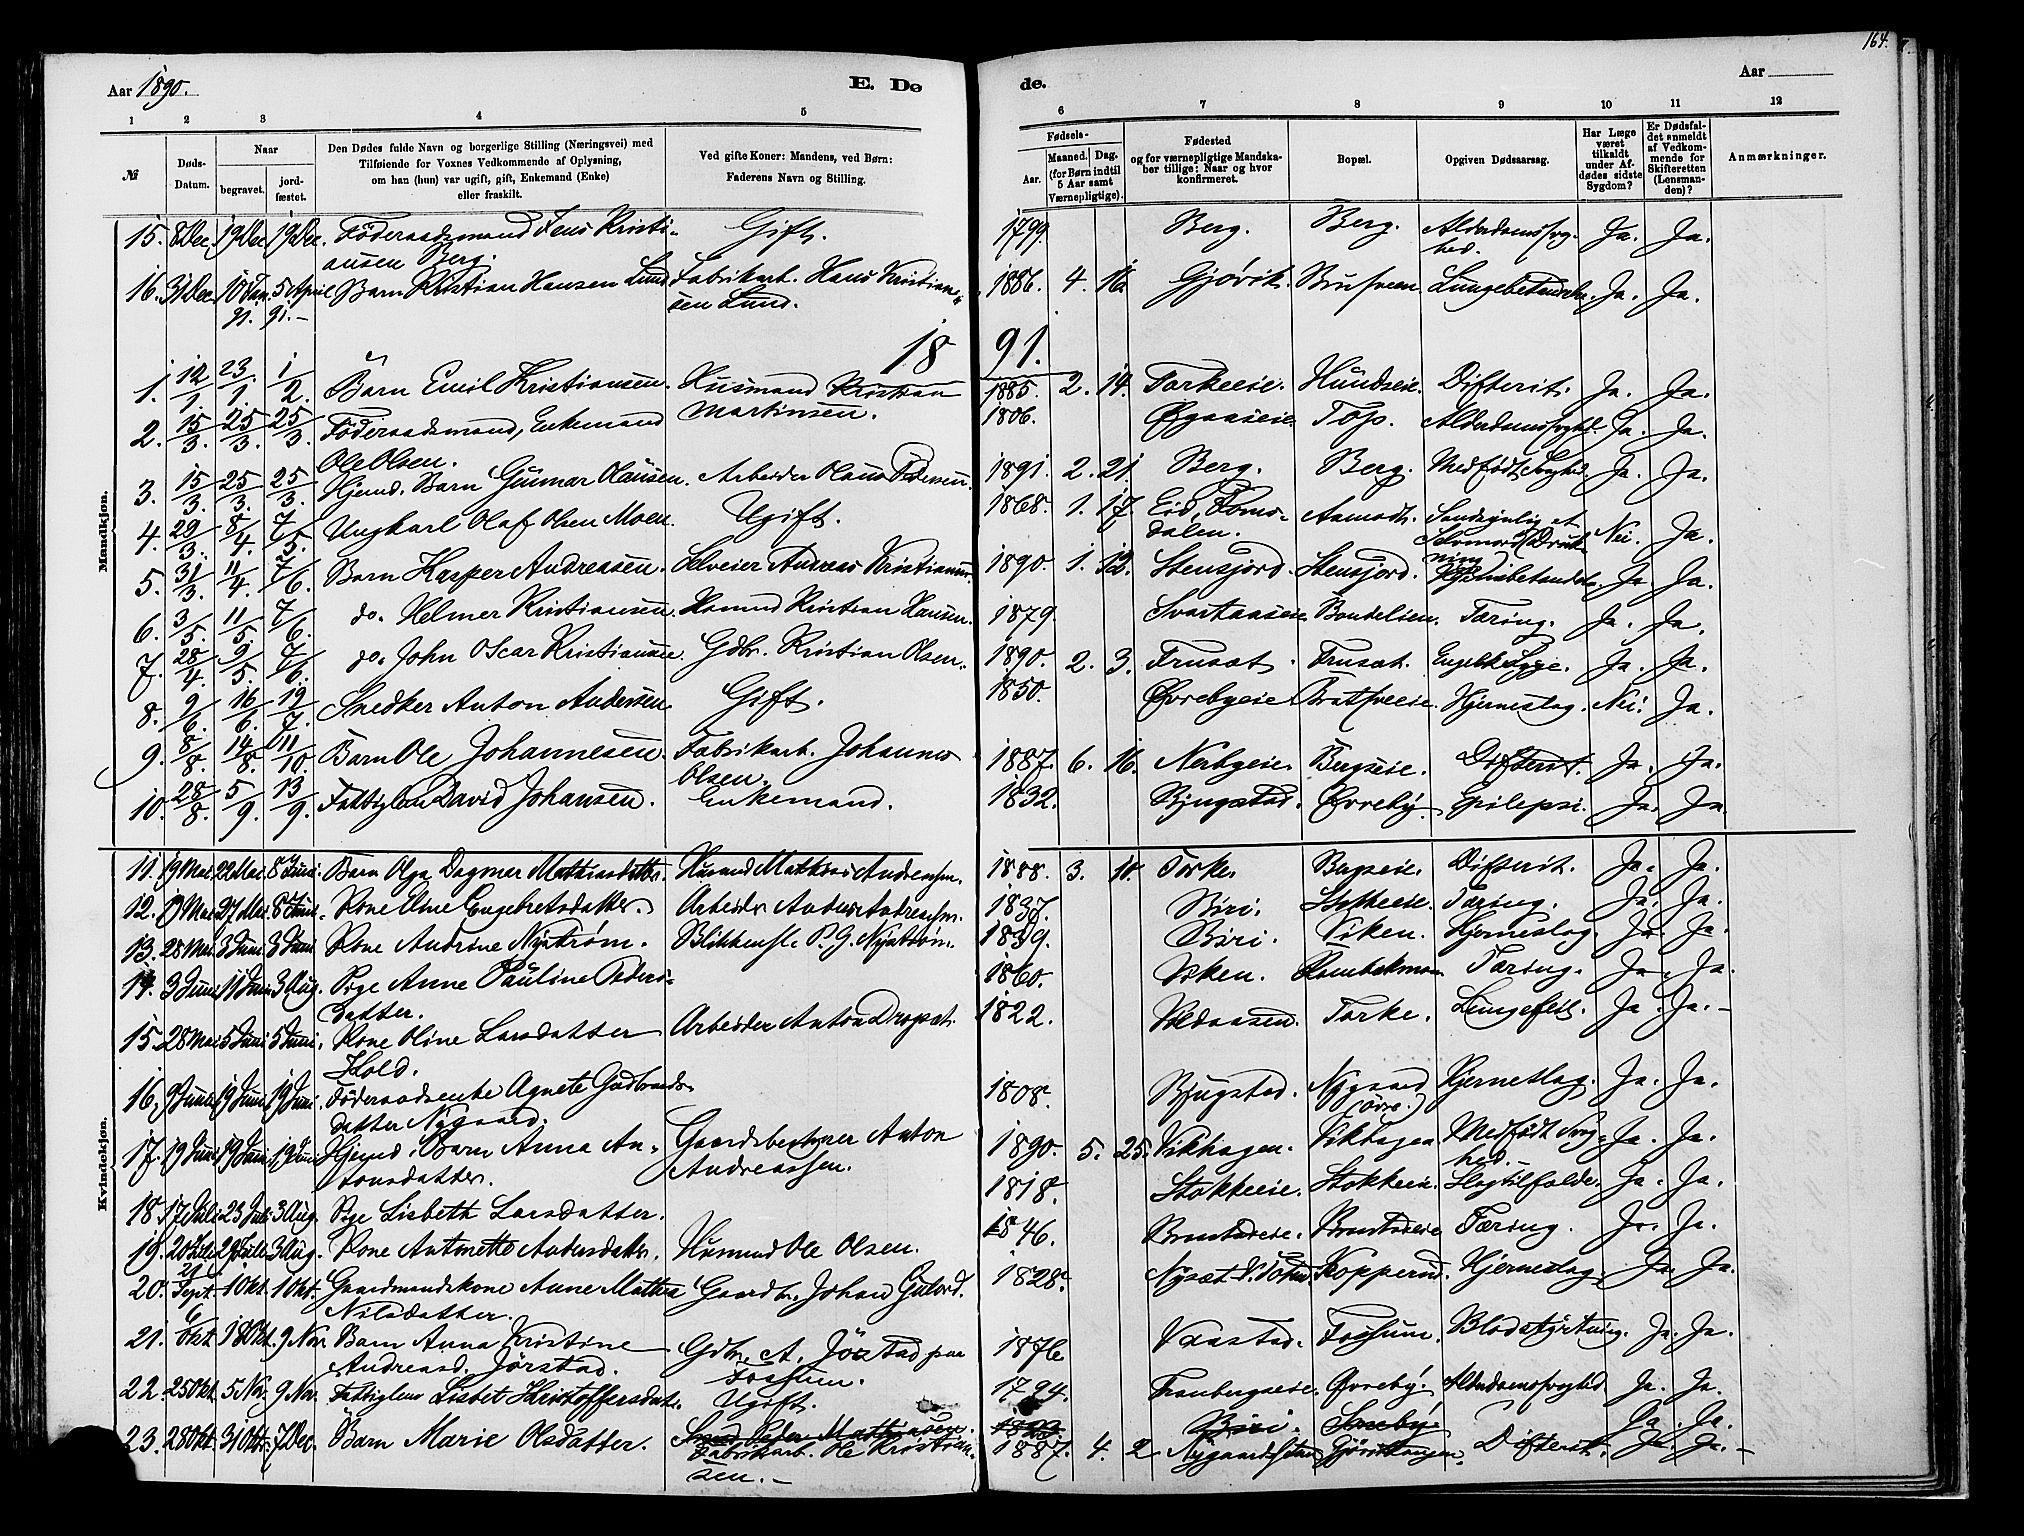 164.
Aar 1890.
E. Dø
de.
Aar
1 2 3 4 5
6 7 8 9 10 11 12
№
Døds-
Datum.
Naar
begravet.
jord-
fæstet.
Den Dødes fulde Navn og borgerlige Stilling (Næringsvei) med
Tilføiende for Voxnes Vedkommende af Oplysning,
om han (hun) var ugift, gift, Enkemand (Enke)
eller fraskilt.
Ved gifte Koner: Mandens, ved Børn:
Faderens Navn og Stilling.
Fødsels-
Aar.
Maaned. Dag.
(for Børn indtil
5 Aar samt
Værnepligtige).
Fødested
og for værnepligtige Mandska-
ber tillige: Naar og hvor
konfirmeret.
Bopæl.
Opgiven Dødsaarsag.
Har Læge
været
tilkaldt
under Af-
dødes sidste
Sygdom?
Er Dødsfal-
det anmeldt
af Vedkom-
mende for
Skifteretten
(Lensman-
den)?
Anmærkninger.
Mandkjøn.
15. 8 Dec 19 Dec 19 Dec. Föderaadsmand Jens Kristi- Gift. 1799. Berg. Berg. Alderdomssvag- Ja. Ja.
ansen Berg. hed.
16. 31 Dec 10 Jan. 5 April Barn Kristian Hansen Lund Fabrikarb. Hans Kristian- 1886. 4. 16 Gjövik. Lungebetændelse. Ja. Ja.
91. 91.- sen Lund.
18 91.
1. 12/1. 23/1. 1/2. Barn Emil Kristiansen. Husmand Kristian 1885. 2. 14. Torkeeie. Hundseie. Difterit. Ja. Ja.
Martinsen.
2. 15/3. 25/3. 25/3. Föderaadsmand, Enkemand 1806. Øgaaseie. Top. Alderdomssvaghd. Ja. Ja.
Ole Olsen.
3. 15/3. 25/3. 25/3. Hjemd. Barn Gunnar Olausen. Arbeider Olaus Pedersen. 1891. 2. 21. Berg. Berg. Medfödt Svaghed. Ja. Ja.
4. 29/3. 8/4. 7/5. Ungkarl Olaf Olsen Moen. Ugift. 1868. 1. 17 Eid, Roms- Aamodt. Sandsynlig et Nei. Ja.
dalen. Selvmord (Druk-
ning)
5. 31/3. 11/4. 7/6. Barn Kasper Andreassen. Selveier Andreas Kristiansen. 1890. 1. 13. Stensjord. Stensjord. Ja. Ja.
6. 3/5. 11/5. 7/6. do. Helmer Kristiansen. Husmd Kristian Hansen. 1879. Svartaaseie Bondelien. Tæring. Ja. Ja.
7. 28/4. 9/5. 7/6. do. John Oscar Kristiansen. Gdbr. Kristian Olsen. 1890. 2. 3. Frusæt. Frusæt. Engelsk Syge. Ja. Ja.
8. 9/6. 16/6. 19/7. Snedker Anton Andersen. Gift. 1850. Øvrebyeie Bratsveeie. Hjerneslag. Nei. Ja.
9. 8/8. 14/8. 11/10. Barn Ole Johannesen. Fabrikarb. Johannes 1887. 6. 16. Nerbyeie. Bergseie. Difterit. Ja. Ja.
Olsen.
10. 28/8. 5/9. 13/9. Fattiglem David Johansen. Enkemand. 1832. Bjugstad. Øvreby. Epilepsi. Ja. Ja
Kvindekjøn.
11. 19 Mai 22 Mai. 8 Juni. Barn Olga Dagmar Mathiasdatter. Husmd Mathias Andreassen. 1888. 3. 10. Torke. Bergseie. Difterit. Ja. Ja.
12. 19 Mai 27 Mai. 8 Juni. Kone Eline Engebretsdatter. Arbeider Anders Andreassen. 1837. Biri. Stokkeeie. Tæring. Ja. Ja.
13. 28 Mai 3 Juni 3 Juni Kone Andrine Nyström. Blikkensl. P. G. Nyström. 1839. Biri. Viken. Hjerneslag. Ja. Ja.
14. 3 Juni 11 Juni 3 Aug. Pige Anne Pauline Peders- 1860. Viken. Tæring. Ja. Ja.
datter.
15. 28 Mai 5 Juni 5 Juni. Kone Oline Larsdatter Arbeider Anton 1822. Torke. Lungefeil. Ja. Ja.-
Hold.
16. 9 Juni 19 Juni 19 Juni. Föderaadsenke Agnete Gudbrands- 1808. Bjugstad. Nygaard Hjerneslag. Ja. Ja.
datter Nygaard. (övre.)
17. 19 Juni 19 Juni 19 Juni Hjemd. Barn Anna An- Gaardbestyrer Anton 1890. 5. 25. Vikhagen. Vikhagen Medfödt Svag- Ja. Ja.
tonsdatter. Andreassen. hed.-
18. 17 Juli 25 Juli 3 Aug. Pige Lisbeth Larsdatter. 1818. Stokkeeie. Stokkeeie. Slagtilfælde. Ja. Ja.
19. 20 Juli 29 Juli 3 Aug. Kone Antonette Andersdatter. Husmd Ole Olsen. 1846. Tæring. Ja. Ja.
20. 21 Sept. 1 Okt. 1 Okt. Gaardmandskone Anne Mathea Gaardbr. Johan Gulord. 1828. Nysæt V. Toten Kopperud. Hjerneslag. Ja. Ja.
Nilsdatter.
21. 6 Okt. 18 Okt. 9 Nov. Barn Anna Kristine Gdbr. A. Jörstad paa 1876 Vaastad. Fossum. Blodstyrtning. Ja. Ja.
Andreasd. Jörstad. Fossum.
22. 25 Okt. 5 Nov. 9 Nov. Fattiglem Lisbet Kristoffersdatt. Ugift. 1794. Tranbergseie. Øvreby. Alderdomssvaghed Ja. Ja.
Biri. Ja. Ja.
23. 28 Okt. 31 Okt. 7 Dec. Barn Marie Olsdatter. Fabrikarb. Ole Kristian- 1887. 4. 2 Difterit. Ja. Ja.-
sen.-